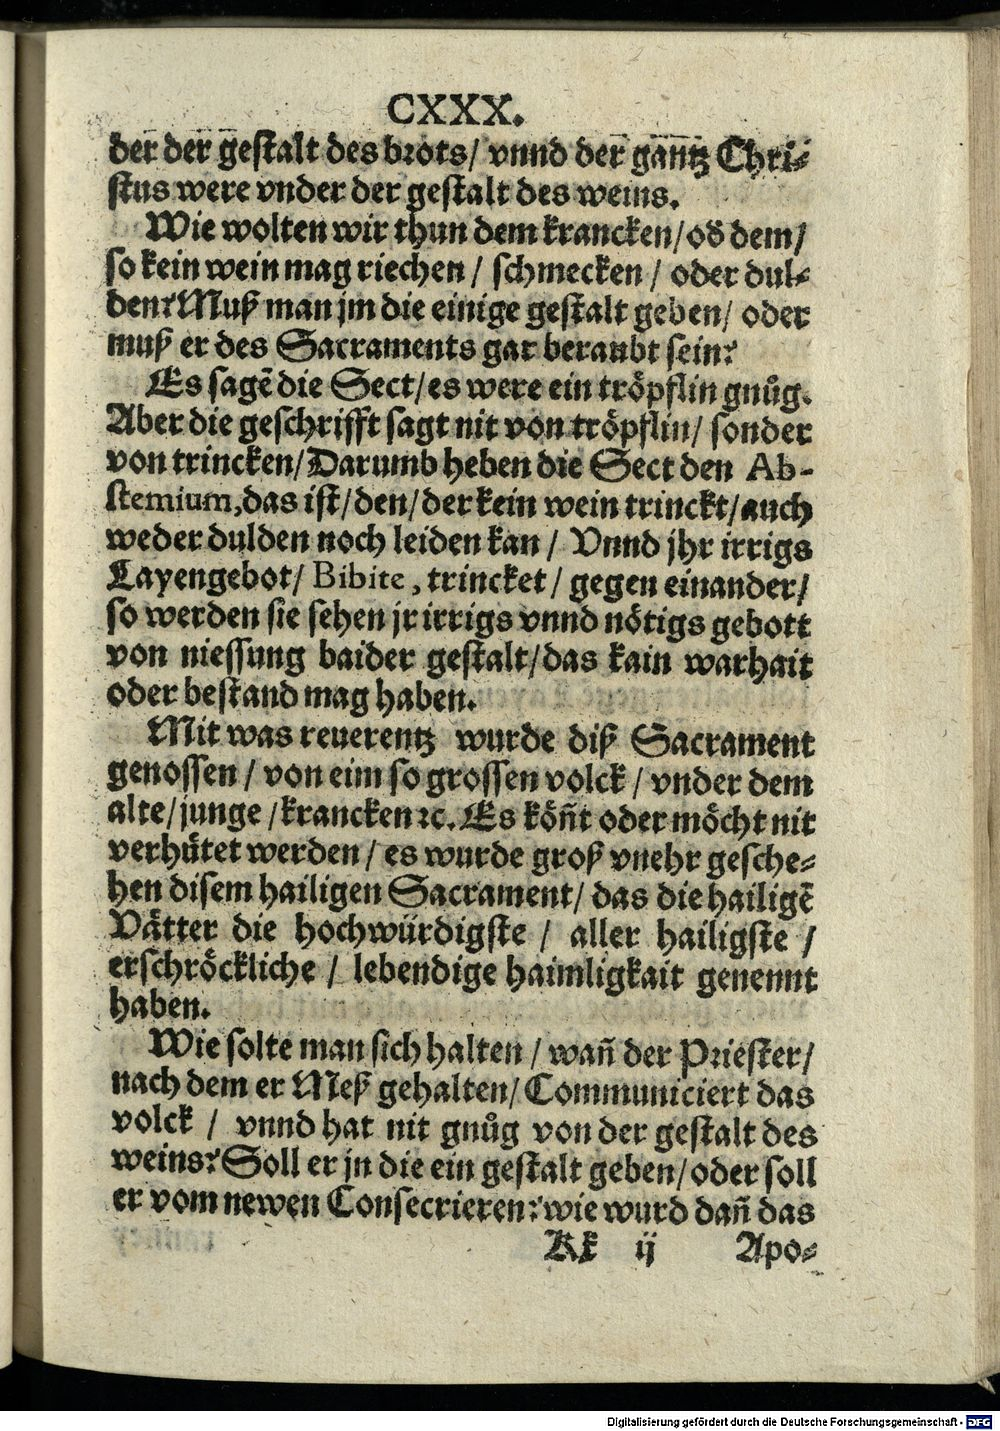 CXXX.
der der gestalt des brots/ vnnd der gantz Chri-
stus were vnder der gestalt des weins.
Wie wolten wir thun dem krancken/ oď dem/
so kein wein mag riechen/ schmecken/ oder dul-
den? Muß man jm die einige gestalt geben/ oder
muß er des Sacraments gar beraubt sein?
Es sagẽ die Sect/ es were ein tröpflin gnůg.
Aber die geschrifft sagt nit von tröpflin/ sonder
von trincken/ Darumb heben die Sect den Ab-
stemium, das ist/ den/ der kein wein trinckt/ auch
weder dulden noch leiden kan/ Vnnd jhr irrigs
Layengebot/ Bibite, trincket/ gegen einander/
so werden sie sehen jr irrigs vnnd nötigs gebott
von niessung baider gestalt/ das kain warhait
oder bestand mag haben.
Mit was reuerentz wurde diß Sacrament
genossen/ von eim so grossen volck/ vnder dem
alte/ junge/ krancken ꝛc. Es köñt oder möcht nit
verhütet werden/ es wurde groß vnehr gesche-
hen disem hailigen Sacrament/ das die hailigẽ
Vätter die hochwürdigste/ aller hailigste/
erschröckliche/ lebendige haimligkait genennt
haben.
Wie solte man sich halten/ wañ der Priester/
nach dem er Meß gehalten/ Communiciert das
volck/ vnnd hat nit gnůg von der gestalt des
weins? Soll er jn die ein gestalt geben/ oder soll
er vom newen Consecrieren? wie wurd dañ das
Kk ij Apo-
Digitalisierung gefördert durch die Deutsche Forschungsgemeinschaft - DFG